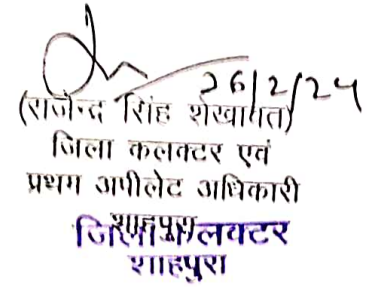 26/2/24
(राजेन्द्र सिंह शेखावत)
जिला कलक्टर एवं
प्रथम अपीलेट अधिकारी
शाहपुरा
जिला कलक्टर
शाहपुरा